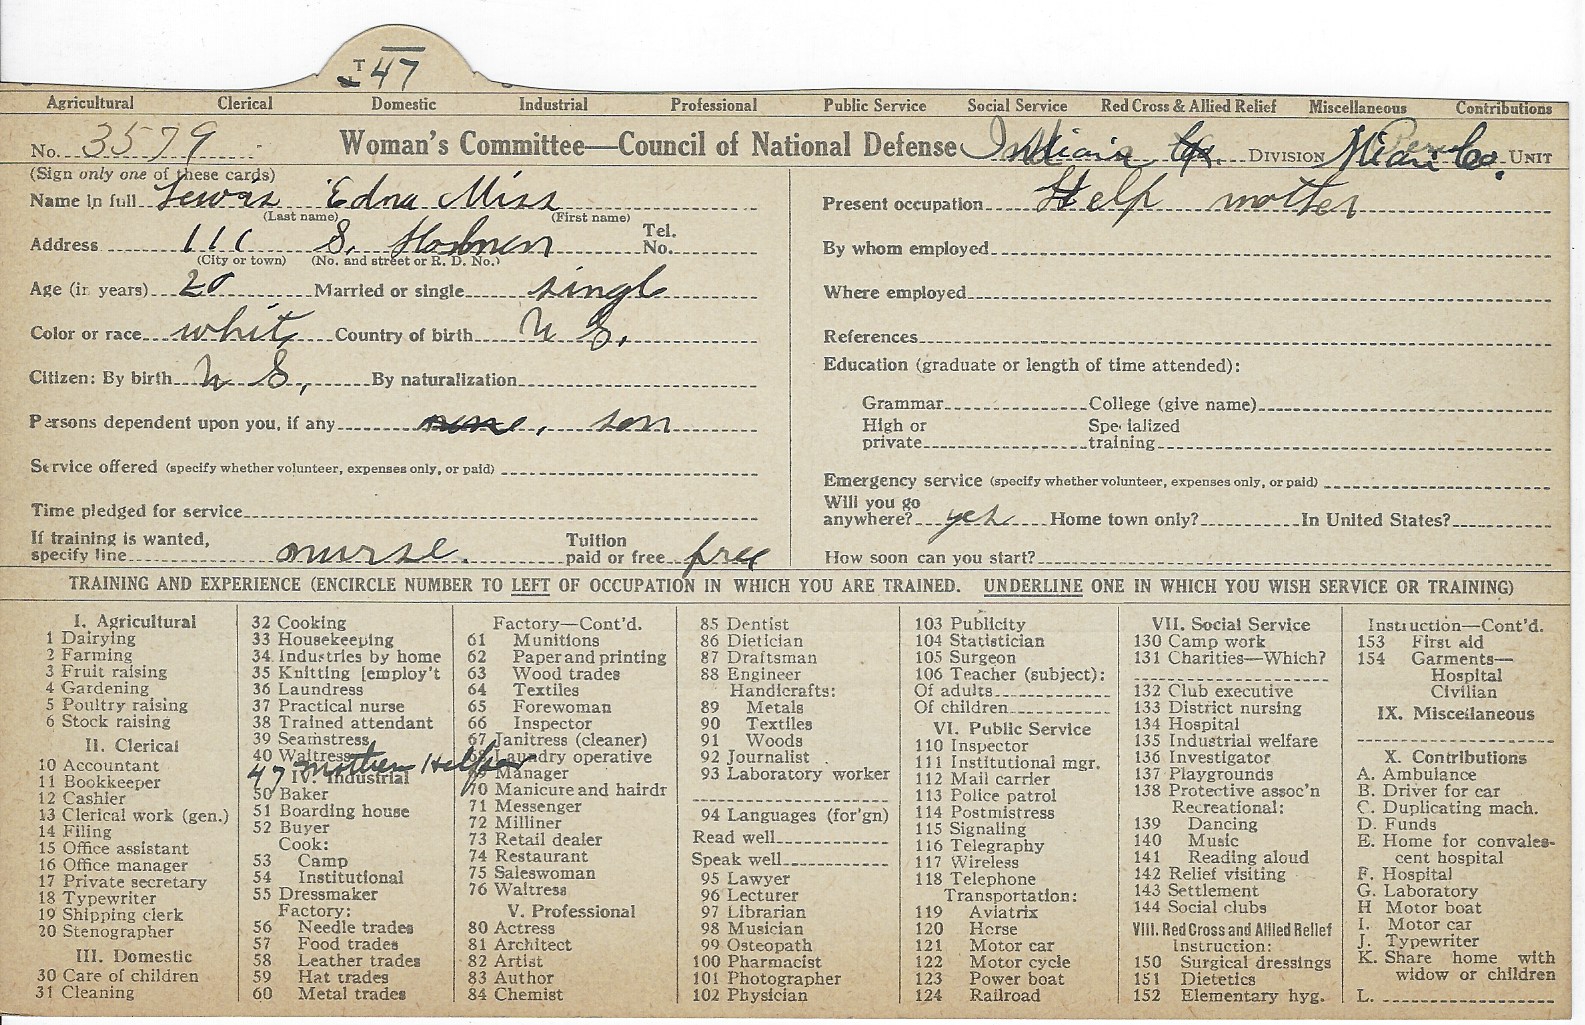 T 47
Agricultural Clerical Domestic Industrial Professional Public Service Social Service Red Cross & Allied Relief Miscellaneous Contributions
No. 3579 Woman's Committee—Council of National Defense Indiana DIVISION Miami Co. UNIT
(Sign only one of these cards)
Name in full Lewis Edna Miss
(Last name) (First name)
Address 111 S. Tel. No.
(City or town) (No. and street or R. D. No.)
Age (in years) 20 Married or single single
Color or race white Country of birth U S.
Citizen: By birth U S. By naturalization
Persons dependent upon you, if any none, son
Service offered (specify whether volunteer, expenses only, or paid)
Time pledged for service
If training is wanted, specify line nurse. Tuition paid or free free
Present occupation Help mother
By whom employed
Where employed
References
Education (graduate or length of time attended):
Grammar College (give name)
High or private Specialized training
Emergency service (specify whether volunteer, expenses only, or paid)
Will you go anywhere? yes Home town only? In United States?
How soon can you start?
TRAINING AND EXPERIENCE (ENCIRCLE NUMBER TO LEFT OF OCCUPATION IN WHICH YOU ARE TRAINED. UNDERLINE ONE IN WHICH YOU WISH SERVICE OR TRAINING)
I. Agricultural
1 Dairying
2 Farming
3 Fruit raising
4 Gardening
5 Poultry raising
6 Stock raising
II. Clerical
10 Accountant
11 Bookkeeper
12 Cashier
13 Clerical work (gen.)
14 Filing
15 Office assistant
16 Office manager
17 Private secretary
18 Typewriter
19 Shipping clerk
20 Stenographer
III. Domestic
30 Care of children
31 Cleaning
32 Cooking
33 Housekeeping
34 Industries by home
35 Knitting [employ't
36 Laundress
37 Practical nurse
38 Trained attendant
39 Seamstress
40 Waitress
47 mothers Helper
IV. Industrial
50 Baker
51 Boarding house
52 Buyer
Cook:
53 Camp
54 Institutional
55 Dressmaker
Factory:
56 Needle trades
57 Food trades
58 Leather trades
59 Hat trades
60 Metal trades
Factory—Cont'd.
61 Munitions
62 Paper and printing
63 Wood trades
64 Textiles
65 Forewoman
66 Inspector
67 Janitress (cleaner)
68 Laundry operative
69 Manager
70 Manicure and hairdr
71 Messenger
72 Milliner
73 Retail dealer
74 Restaurant
75 Saleswoman
76 Waitress
V. Professional
80 Actress
81 Architect
82 Artist
83 Author
84 Chemist
85 Dentist
86 Dietician
87 Draftsman
88 Engineer
Handicrafts:
89 Metals
90 Textiles
91 Woods
92 Journalist
93 Laboratory worker
94 Languages (for'gn)
Read well
Speak well
95 Lawyer
96 Lecturer
97 Librarian
98 Musician
99 Osteopath
100 Pharmacist
101 Photographer
102 Physician
103 Publicity
104 Statistician
105 Surgeon
106 Teacher (subject):
Of adults
Of children
VI. Public Service
110 Inspector
111 Institutional mgr.
112 Mail carrier
113 Police patrol
114 Postmistress
115 Signaling
116 Telegraphy
117 Wireless
118 Telephone
Transportation:
119 Aviatrix
120 Horse
121 Motor car
122 Motor cycle
123 Power boat
124 Railroad
VII. Social Service
130 Camp work
131 Charities—Which?
132 Club executive
133 District nursing
134 Hospital
135 Industrial welfare
136 Investigator
137 Playgrounds
138 Protective assoc'n
Recreational:
139 Dancing
140 Music
141 Reading aloud
142 Relief visiting
143 Settlement
144 Social clubs
VIII. Red Cross and Allied Relief
Instruction:
150 Surgical dressings
151 Dietetics
152 Elementary hyg.
Instruction—Cont'd.
153 First aid
154 Garments—
Hospital
Civilian
IX. Miscellaneous
X. Contributions
A. Ambulance
B. Driver for car
C. Duplicating mach.
D. Funds
E. Home for convales-
cent hospital
F. Hospital
G. Laboratory
H Motor boat
I. Motor car
J. Typewriter
K. Share home with
widow or children
L.